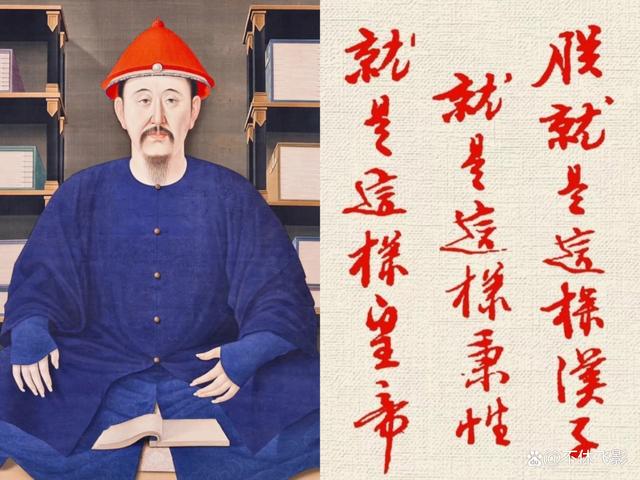 朕就是這樣漢子
就是這樣秉性
就是這樣皇帝
@不休飞影